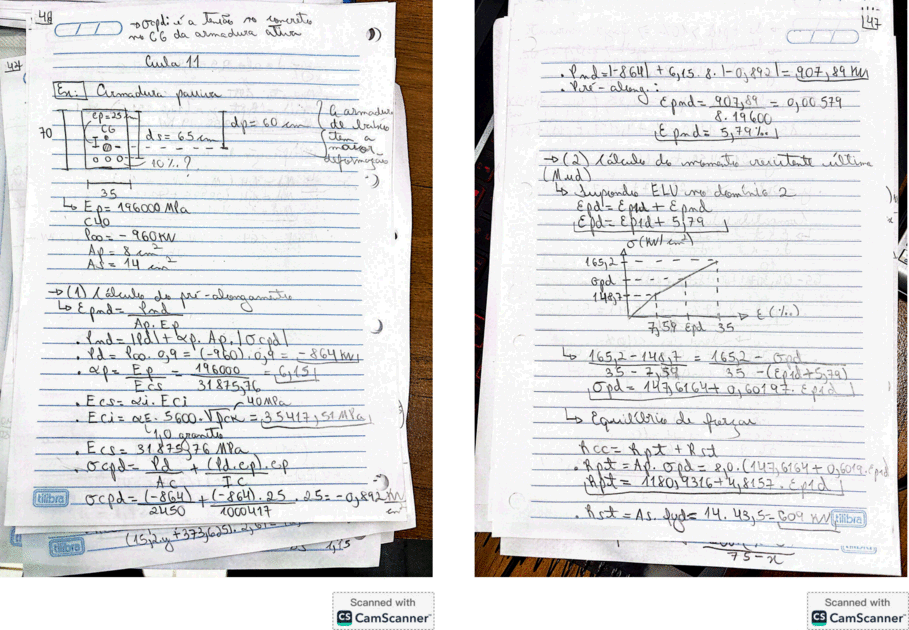 48
→ σcpdi é a tensão no concreto
no CG da armadura ativa
Aula 11
Ex: Armadura passiva
ep=25
CG
70
ds = 65 cm
dp = 60 cm
A armadura
de baixo
tem a
maior
deformação
10‰?
35
↳ Ep = 196000 MPa
C40
P∞ = -960 KN
Ap = 8 cm²
As = 14 cm²
→ (1) Cálculo do pré-alongamento
↳ Epnd = Pnd / Ap. Ep
• Pnd = |Pd| + αp. Ap. |σcpd|
• Pd = P∞. 0,9 = (-960). 0,9 = -864 KN
• αp = Ep / Ecs = 196000 / 31875,76 = 6,151
• Ecs = αi. Eci
40MPa
• Eci = αE. 5600. √fck = 35417,51 MPa
↳ 1,0 granito
• Ecs = 31875,76 MPa
• σcpd = Pd / Ac + (Pd.ep).ep / Ic
σcpd = (-864) / 2450 + (-864). 25 . 25 / 1000417 = -0,892 KN / cm²
tilibra
tilibra
47
• Pnd = |-864| + 6,15. 8. |-0,892| = 907,89 KN
• Pré-along.:
Epnd = 907,89 / 8. 19600 = 0,00579
Epnd = 5,79‰
→ (2) Cálculo do momento resistente último
(Mud)
↳ Supondo ELU no domínio 2
Epd = Ep1d + Epnd
Epd = Ep1d + 5,79
σ(KN/cm²)
165,2
σpd
148,7
7,59 Epd 35
E(‰)
↳ 165,2 - 148,7 / 35 - 7,59 = 165,2 - σpd / 35 - (Ep1d+5,79)
σpd = 147,6164 + 0,60197. Ep1d
↳ Equilíbrio de forças
Rcc = Rpt + Rst
• Rpt = Ap. σpd = 8,0. (147,6164 + 0,6019. Ep1d
Rpt = 1180,9316 + 4,8157. Ep1d
Rst = As. fyd = 14. 43,5 = 609 KN
tilibra
75-x
Scanned with
CS CamScanner
Scanned with
CS CamScanner